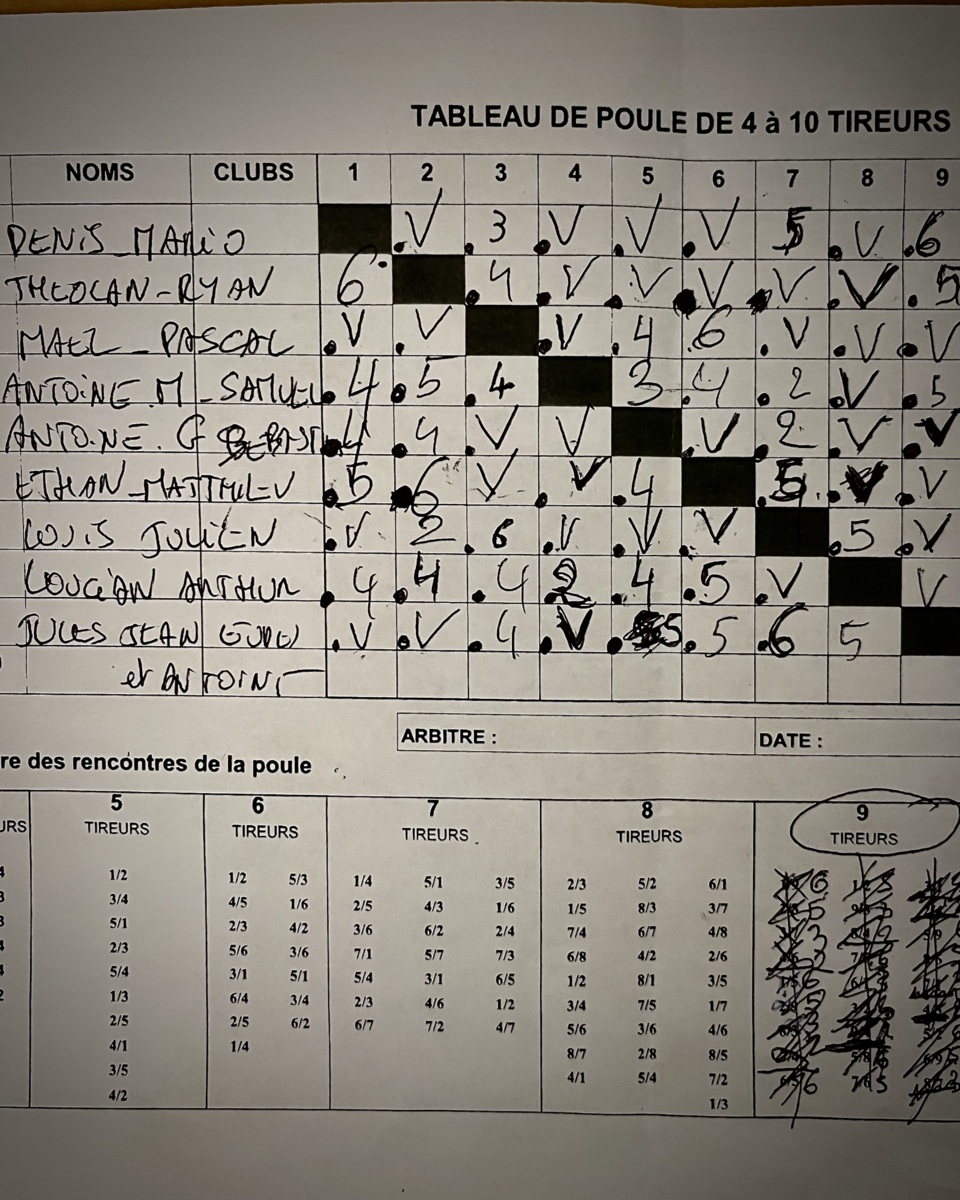 TABLEAU DE POULE DE 4 à 10 TIREURS
NOMS CLUBS 1 2 3 4 5 6 7 8 9
DENIS_MARIO V 3 V V V 5 V 6
THEOCAN-RYAN 6 4 V V V V V 5
MAEL_PASCAL V V V 4 6 V V V
ANTOINE.M_SAMUEL 4 5 4 3 4 2 V 5
ANTOINE.G 4 4 V V V 2 V V
ETHAN_MATTHIEU 5 6 V V 4 5 V V
LOUIS JULIEN V 2 6 V V V 5 V
ARTHUR 4 4 4 2 4 5 V V
JULES JEAN V V 4 V 5 5 6 5
et ANTOINE
ARBITRE : DATE :
re des rencontres de la poule
5 6 7 8 9
URS TIREURS TIREURS TIREURS TIREURS TIREURS
1/2 1/2 5/3 1/4 5/1 3/5 2/3 5/2 6/1
3/4 4/5 1/6 2/5 4/3 1/6 1/5 8/3 3/7
5/1 2/3 4/2 3/6 6/2 2/4 7/4 6/7 4/8
2/3 5/6 3/6 7/1 5/7 7/3 6/8 4/2 2/6
5/4 3/1 5/1 5/4 3/1 6/5 1/2 8/1 3/5
1/3 6/4 3/4 2/3 4/6 1/2 3/4 7/5 1/7
2/5 2/5 6/2 6/7 7/2 4/7 5/6 3/6 4/6
4/1 1/4 8/7 2/8 8/5
3/5 4/1 5/4 7/2
4/2 1/3